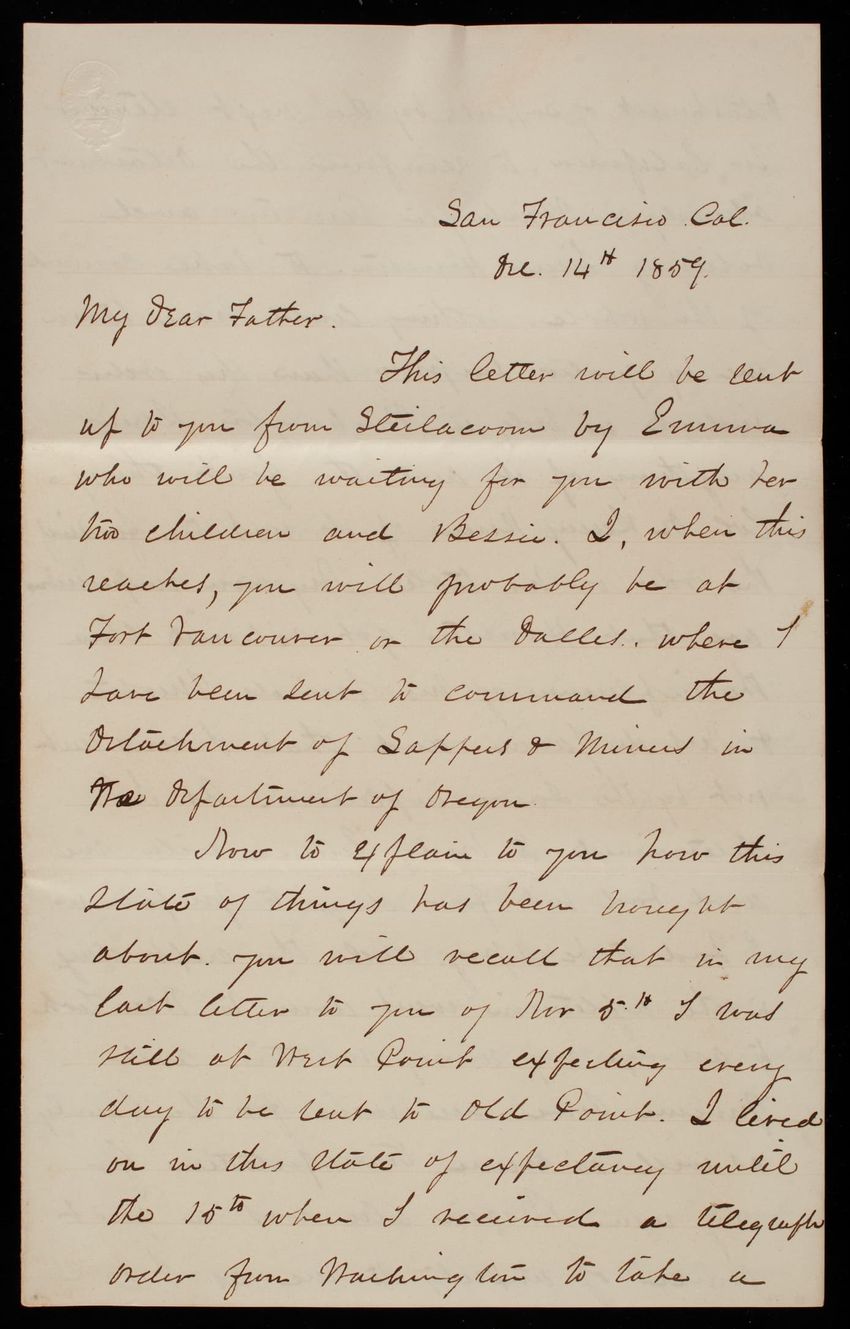 San Francisco. Cal.
Dec. 14th 1859.
My Dear Father.
This letter will be sent
up to you from Steilacoom by Emma
who will be waiting for you with her
two children and Bessie. I, when this
reaches, you will probably be at
Fort Vancouver or the Dalles. where I
have been sent to command the
Detachment of Sappers & Miners in
the Department of Oregon.
Now to explain to you how this
state of things has been brought
about. you will recall that in my
last letter to you of Nov 5.th I was
still at West Point expecting every
day to be sent to Old Point. I lived
on in this state of expectancy until
the 15th when I received a telegraph
order from Washington to take a